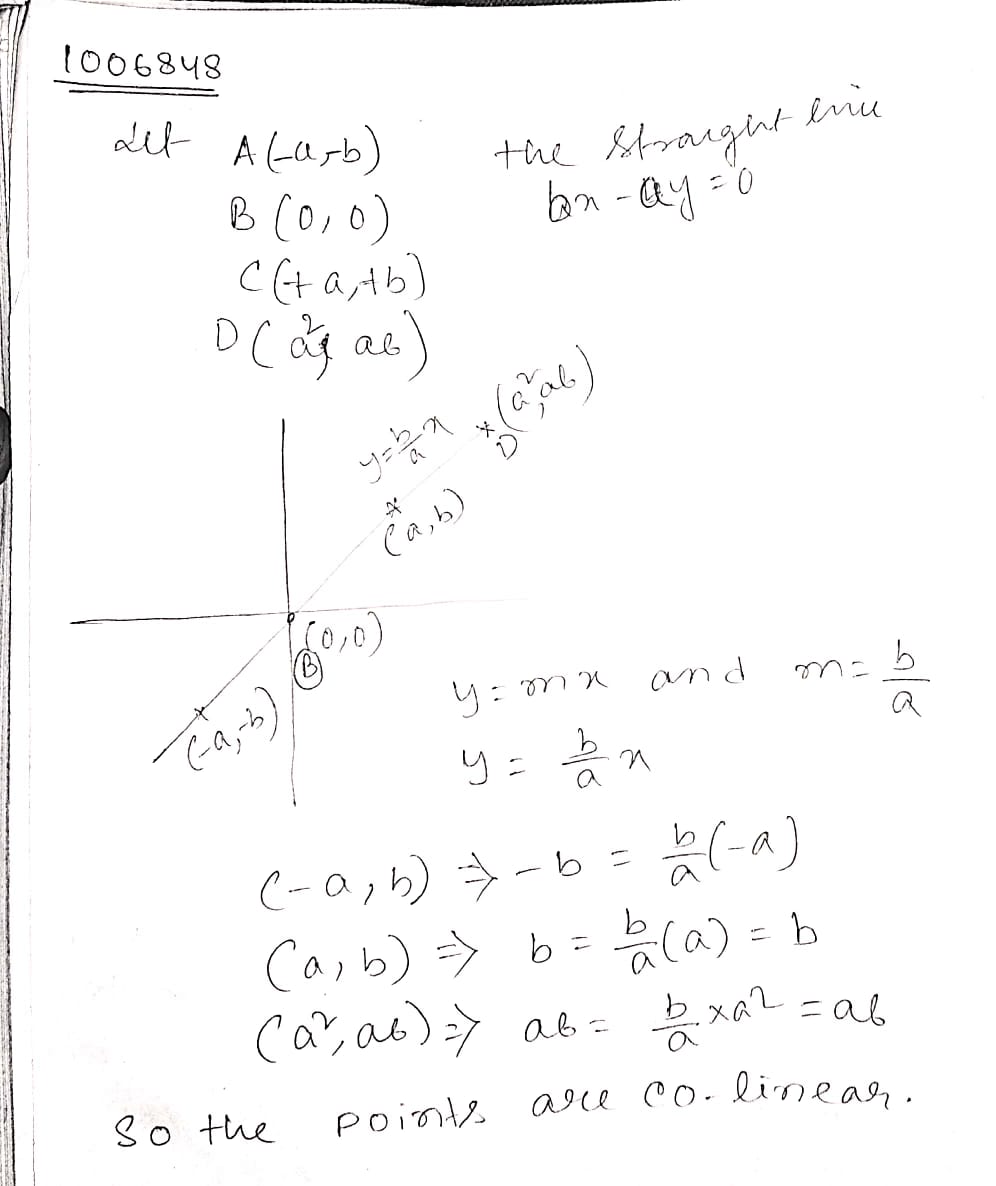 1006848
Let A(-a,-b) the straight line
B(0,0) bx - ay = 0
C(+a,+b)
D(a², ab)
y=b/a x
(a²,ab)
D
(a,b)
(0,0)
B
(-a,-b)
y = mx and m = b/a
y = b/a x
(-a, b) ⇒ -b = b/a(-a)
(a, b) ⇒ b = b/a(a) = b
(a², ab) ⇒ ab = b/a × a² = ab
So the points are co-linear.